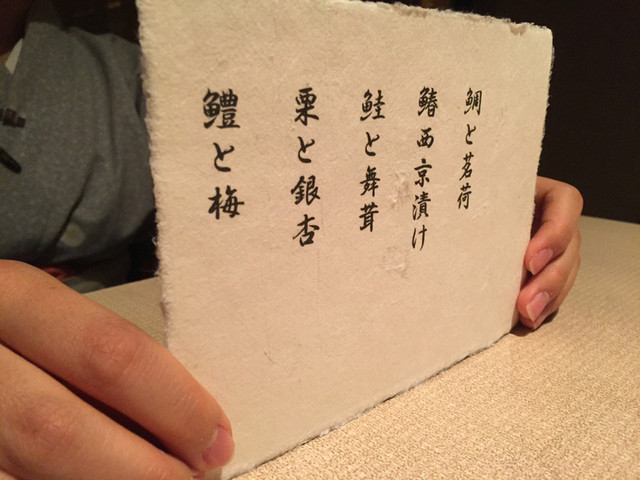 鯛と茗荷
鰆西京漬け
鮭と舞茸
栗と銀杏
鱧と梅